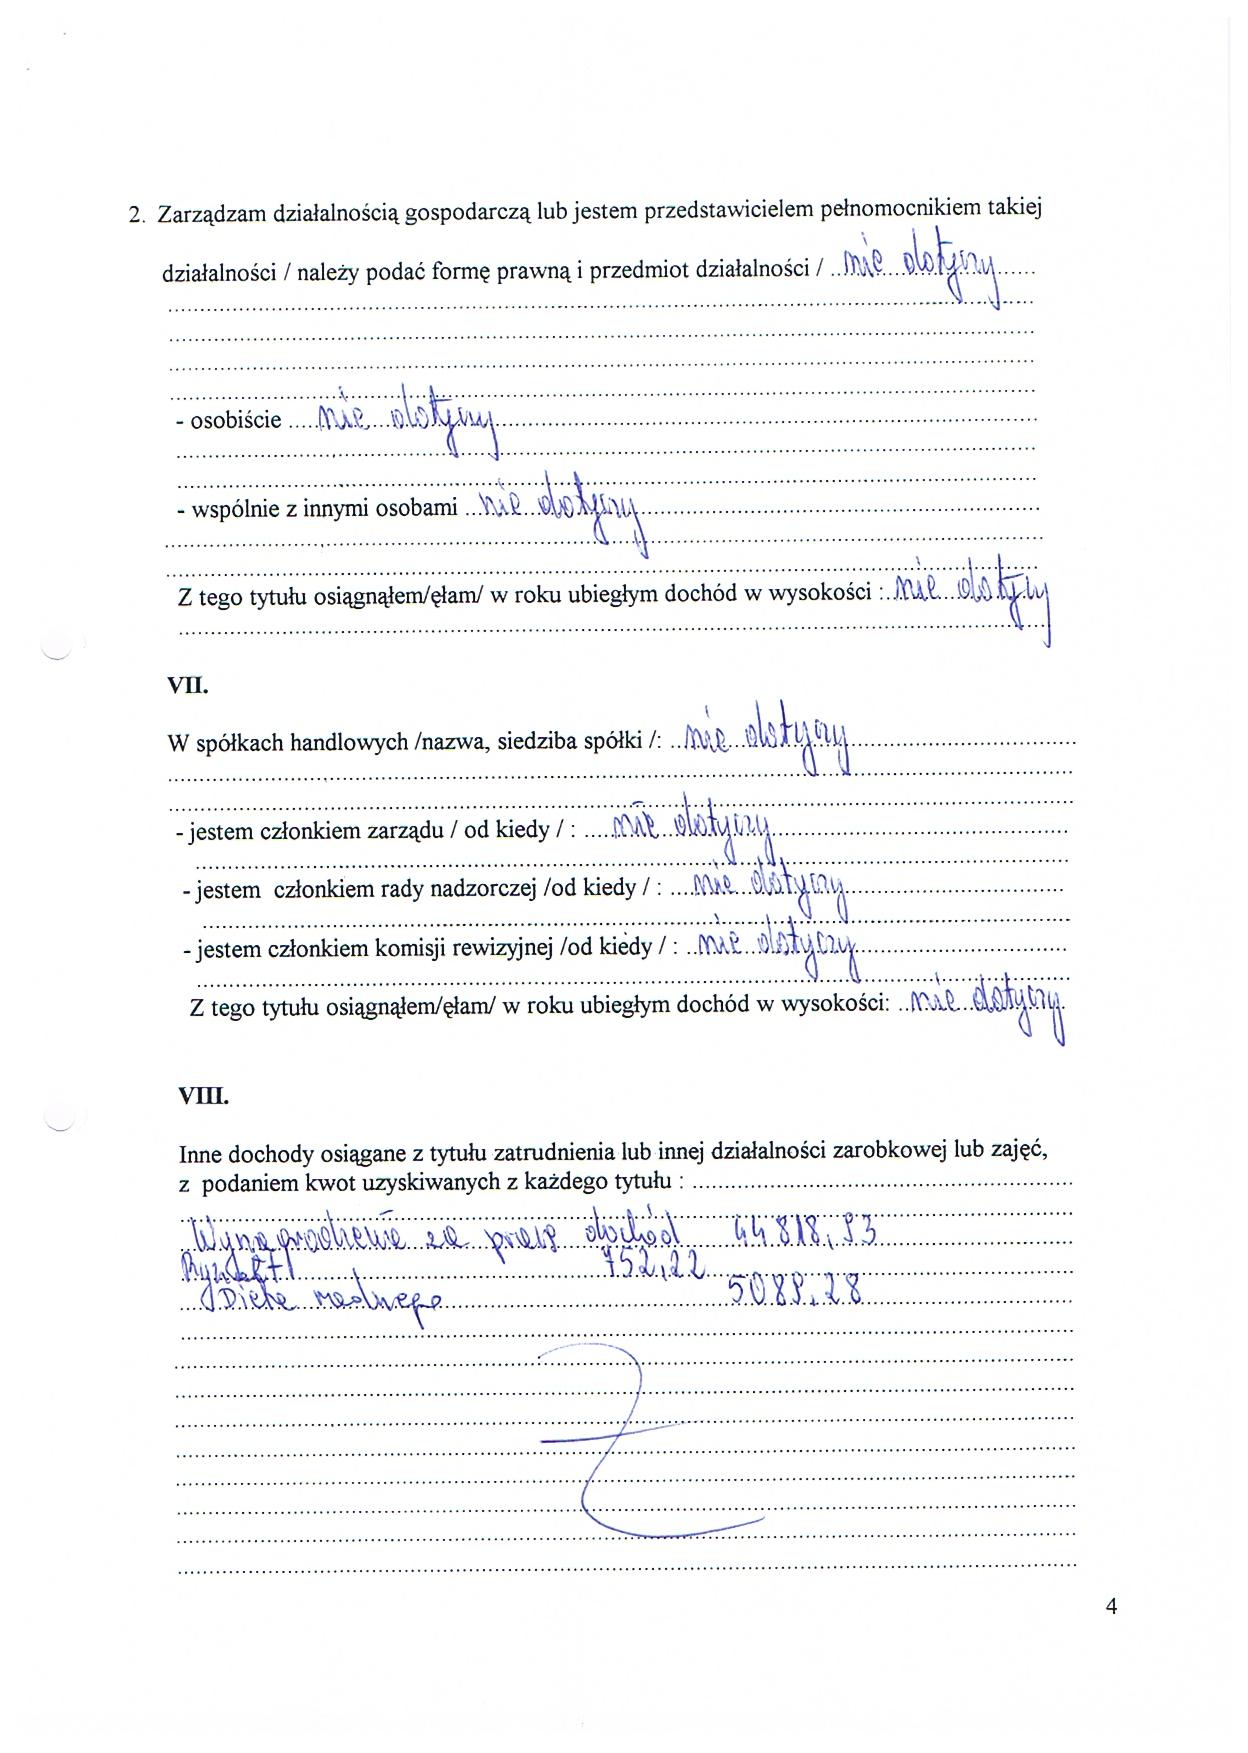 2. Zarządzam działalnością gospodarczą lub jestem przedstawicielem pełnomocnikiem takiej
działalności / należy podać formę prawną i przedmiot działalności / ..nie dotyczy......
- osobiście .....nie dotyczy
- wspólnie z innymi osobami ..nie dotyczy
Z tego tytułu osiągnąłem/ęłam/ w roku ubiegłym dochód w wysokości :..nie dotyczy
VII.
W spółkach handlowych /nazwa, siedziba spółki /: ..nie dotyczy
- jestem członkiem zarządu / od kiedy / : .....nie dotyczy
- jestem członkiem rady nadzorczej /od kiedy / : ....nie dotyczy
- jestem członkiem komisji rewizyjnej /od kiedy / : ..nie dotyczy
Z tego tytułu osiągnąłem/ęłam/ w roku ubiegłym dochód w wysokości: ..nie dotyczy.
VIII.
Inne dochody osiągane z tytułu zatrudnienia lub innej działalności zarobkowej lub zajęć,
z podaniem kwot uzyskiwanych z każdego tytułu :
Wynagrodzenie za pracę dochód 44818,93
Ryczałt 752,22
Dieta radnego 5089,28
4